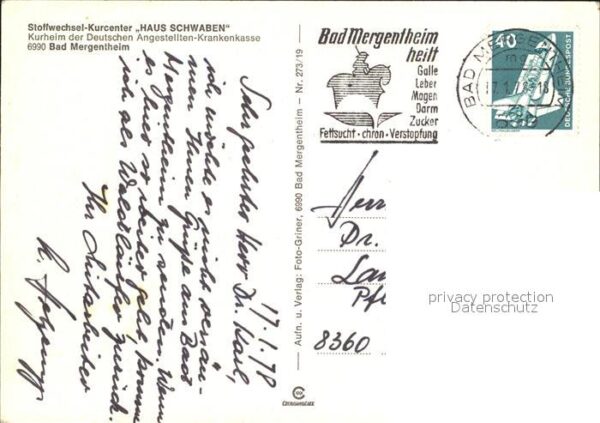 Stoffwechsel-Kurcenter „HAUS SCHWABEN"
Kurheim der Deutschen Angestellten-Krankenkasse
6990 Bad Mergentheim
17.1.78
Sehr geehrter Herr Dr. Karl,
ich möchte es nicht versäu-
men Ihnen Grüße aus Bad
Mergentheim zu senden. Wenn
es hier so weiter geht, komme
ich als Waldläufer zurück.
Ihr Mitarbeiter
Aufn. u. Verlag: Foto-Griner, 6990 Bad Mergentheim – Nr. 273/19
Bad Mergentheim
heilt
Galle
Leber
Magen
Darm
Zucker
Fettsucht · chron · Verstopfung
BAD MERGENTHEIM
40
DEUTSCHE BUNDESPOST
Herr
Dr.
Lan
Pfl
8360
privacy protection
Datenschutz